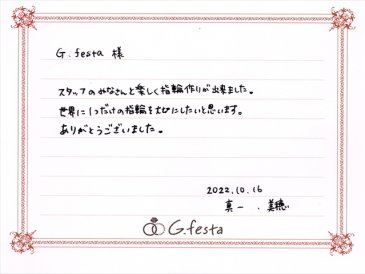 G.festa 様
スタッフのみなさんと楽しく指輪作りが出来ました。
世界に1つだけの指輪を大切にしたいと思います。
ありがとうございました。
2022.10.16
真一 . 美穂
G.festa